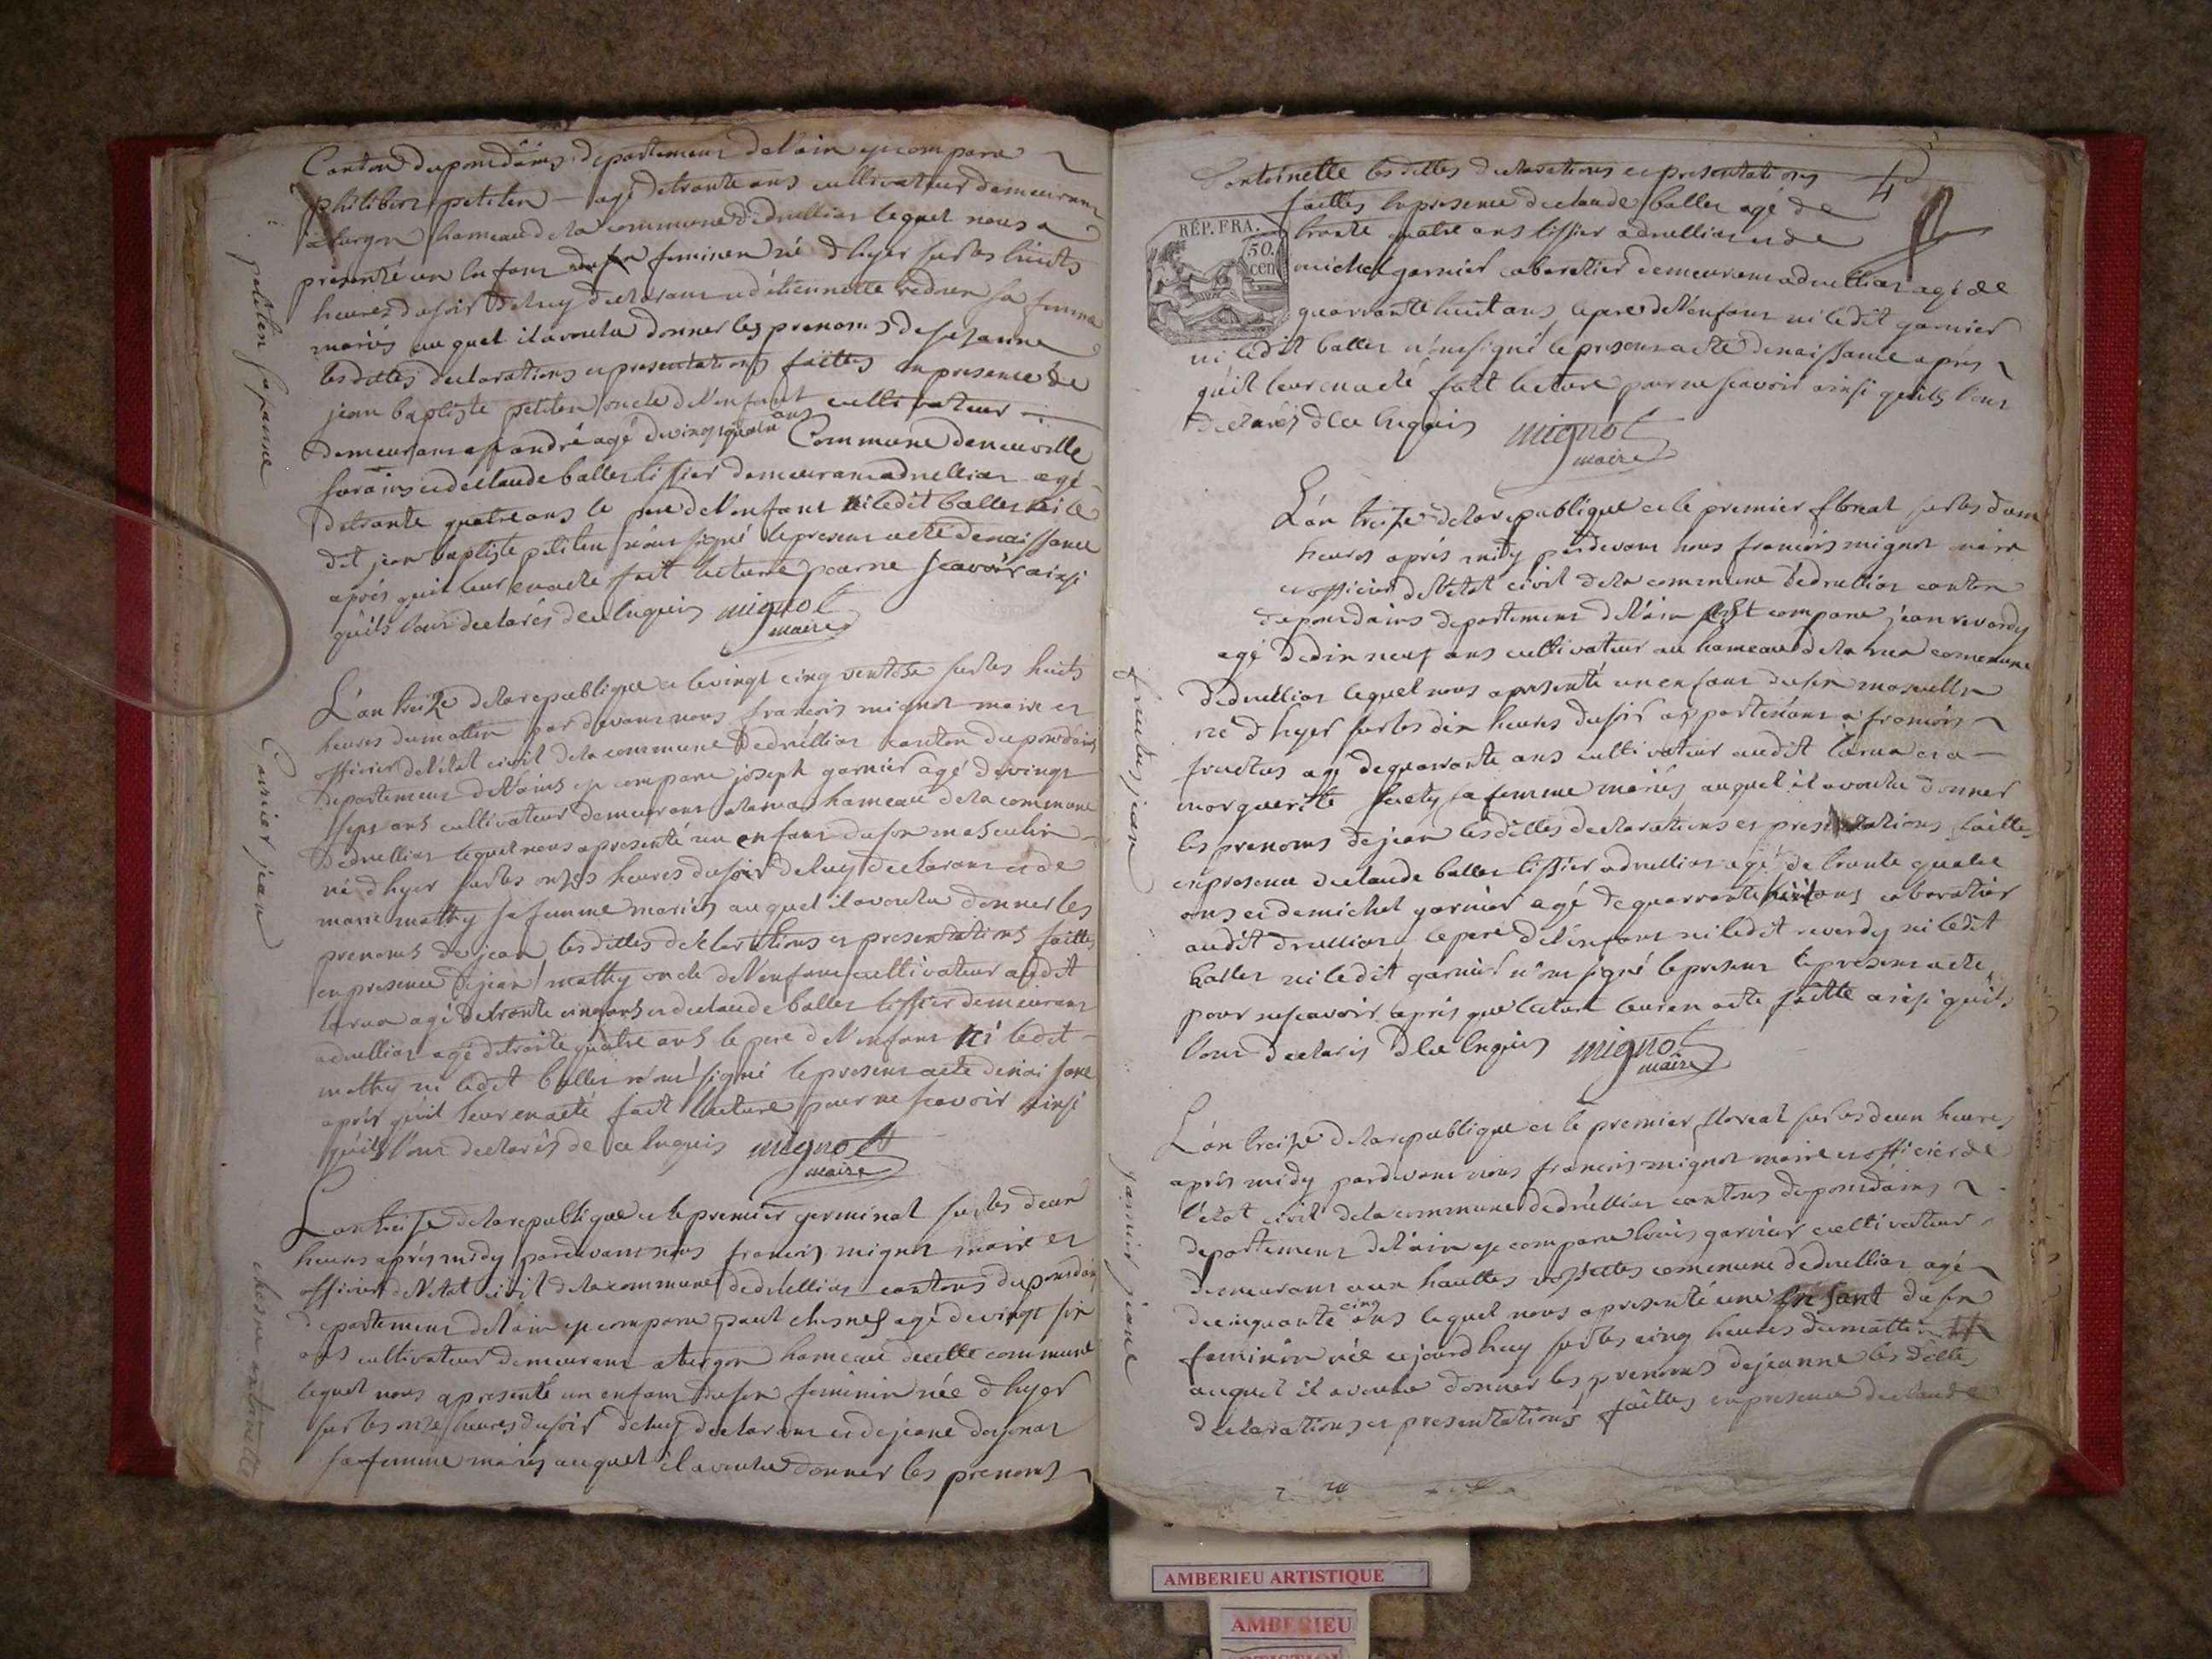 Canton du pondains departement de l'ain est comparu
philibert petiten agé de trante ans cultivateur demeurant
a turgon hameau de la commune de druillias lequel nous a
presenté un enfant feminen né d hyer sur les huits
heures du soir de luy declarant et d'étiennette sa femme
mariés auquel il a voulu donner les prenoms de susanne
les dittes declarations et presentations faittes en presence de
jean baptiste petiten oncle de l'enfant cultivateur
demeurant a st andré agé de vingt quatre ans Commune de neuville
sur ains et de claude ballet tissier demeurant a druillias agé
de trante quatre ans le pere de l'enfant ni ledit ballet ni le
dit jean baptiste petiten n'ont signé le present acte de naissance
aprés qu'il leur en a eté fait lecture pour ne scavoir ainsi
qu'ils l'ont declarés de ce enquis mignot
maire
petiten susanne
L'an treize de la republique et le vingt cinq ventose sur les huits
heures du mattin par devant nous francois mignot maire et
officier de l'état civil de la commune de druillias canton du pondains
departement de l'ains est comparu joseph garnier agé de vingt
sept ans cultivateur demeurant a la rua hameau de la commune
de druillias lequel nous a presenté un enfant du sex masculin
né d hyer sur les onzes heures du soir de luy declarant et de
marie mathy sa femme mariés auquel il a voulu donner les
prenoms de jean les dittes declarations et presentations faittes
en presence de jean mathy oncle de l'enfant cultivateur audit
larua agé de trante cinq ans et de claude ballet tissier demeurant
a druillias agé de trante quatre ans le pere de l'enfant ni ledit
mathy ni ledit ballet n'ont signé le present acte de naissance
aprés qu'il leur en a eté fait lecture pour ne scavoir ainsi
qu'ils l'ont declarés de ce enquis mignot
maire
Garnier jean
L'an treize de la republique et le premier germinal sur les deux
heures aprés midy pardevant nous francois mignot maire et
officier de l'etat civil de la commune de druillias cantons du pondain
departement de l'ain est comparu paul chesne agé de vingt six
ans cultivateur demeurant a turgon hameau de cette commune
lequel nous a presenté un enfant du sex feminin née d hyer
sur les onze heures du soir de luy declarant et de jeane
sa femme mariés auquel il a voulu donner les prenoms
chesne antoinette
4
d'antoinette les dittes declarations et presentations
faittes en presence de claude ballet agé de
trante quatre ans tissier a druillias et de
michel garnier cabaretier demeurant a druillias agé de
quarrante huit ans le pere de l'enfant ni ledit garnier
ni ledit ballet n'ont signé le present acte de naissance aprés
qu'il leur en a eté fait lecture pour ne scavoir ainsi qu'ils l'ont
declarés de ce enquis mignot
maire
RÉP. FRA.
50.
cen
L'an treize de la republique et le premier floreal sur les deux
heures aprés midy pardevant nous francois mignot maire
et officier de l'état civil de la commune de druillias canton
du pondains departement de l'ain est comparu jean reverdy
agé de dix neuf ans cultivateur au hameau de la rua commune
de druillias lequel nous a presenté un enfant du sex masculin
né d hyer sur les dix heures du soir appartenant a francois
fructus agé de quarrante ans cultivateur audit larua et a
marguerite sa femme mariés auquel il a voulu donner
les prenoms de jean les dittes declarations et presentations faitte
en presence de claude ballet tissier a druillias agé de trante quatre
ans et de michel garnier agé de quarrante huit ans cabaretier
audit druillias le pere de l'enfant ni ledit reverdy ni ledit
ballet ni ledit garnier n'ont signé le present le present acte
pour ne scavoir aprés que lecture leur en a eté faitte ainsi qu'ils
l'ont declaris de ce enquis mignot
maire
fructus jean
L'an treize de la republique et le premier floreal sur les deux heures
aprés midy pardevant nous francois mignot maire et officier de
l'état civil de la commune de druillias cantons du pondains
departement de l'ain est comparu louis garnier cultivateur
demeurant aux hauttes commune de druillias agé
de cinquante cinq ans lequel nous a presenté une enfant du sex
feminin née cejourd huy sur les cinq heures du mattin
auquel il a voulu donner les prenoms de jeanne les ditte
declarations et presentations faittes en presence de claude
garnier jeane
AMBERIEU ARTISTIQUE
AMBERIEU
ARTISTIQUE